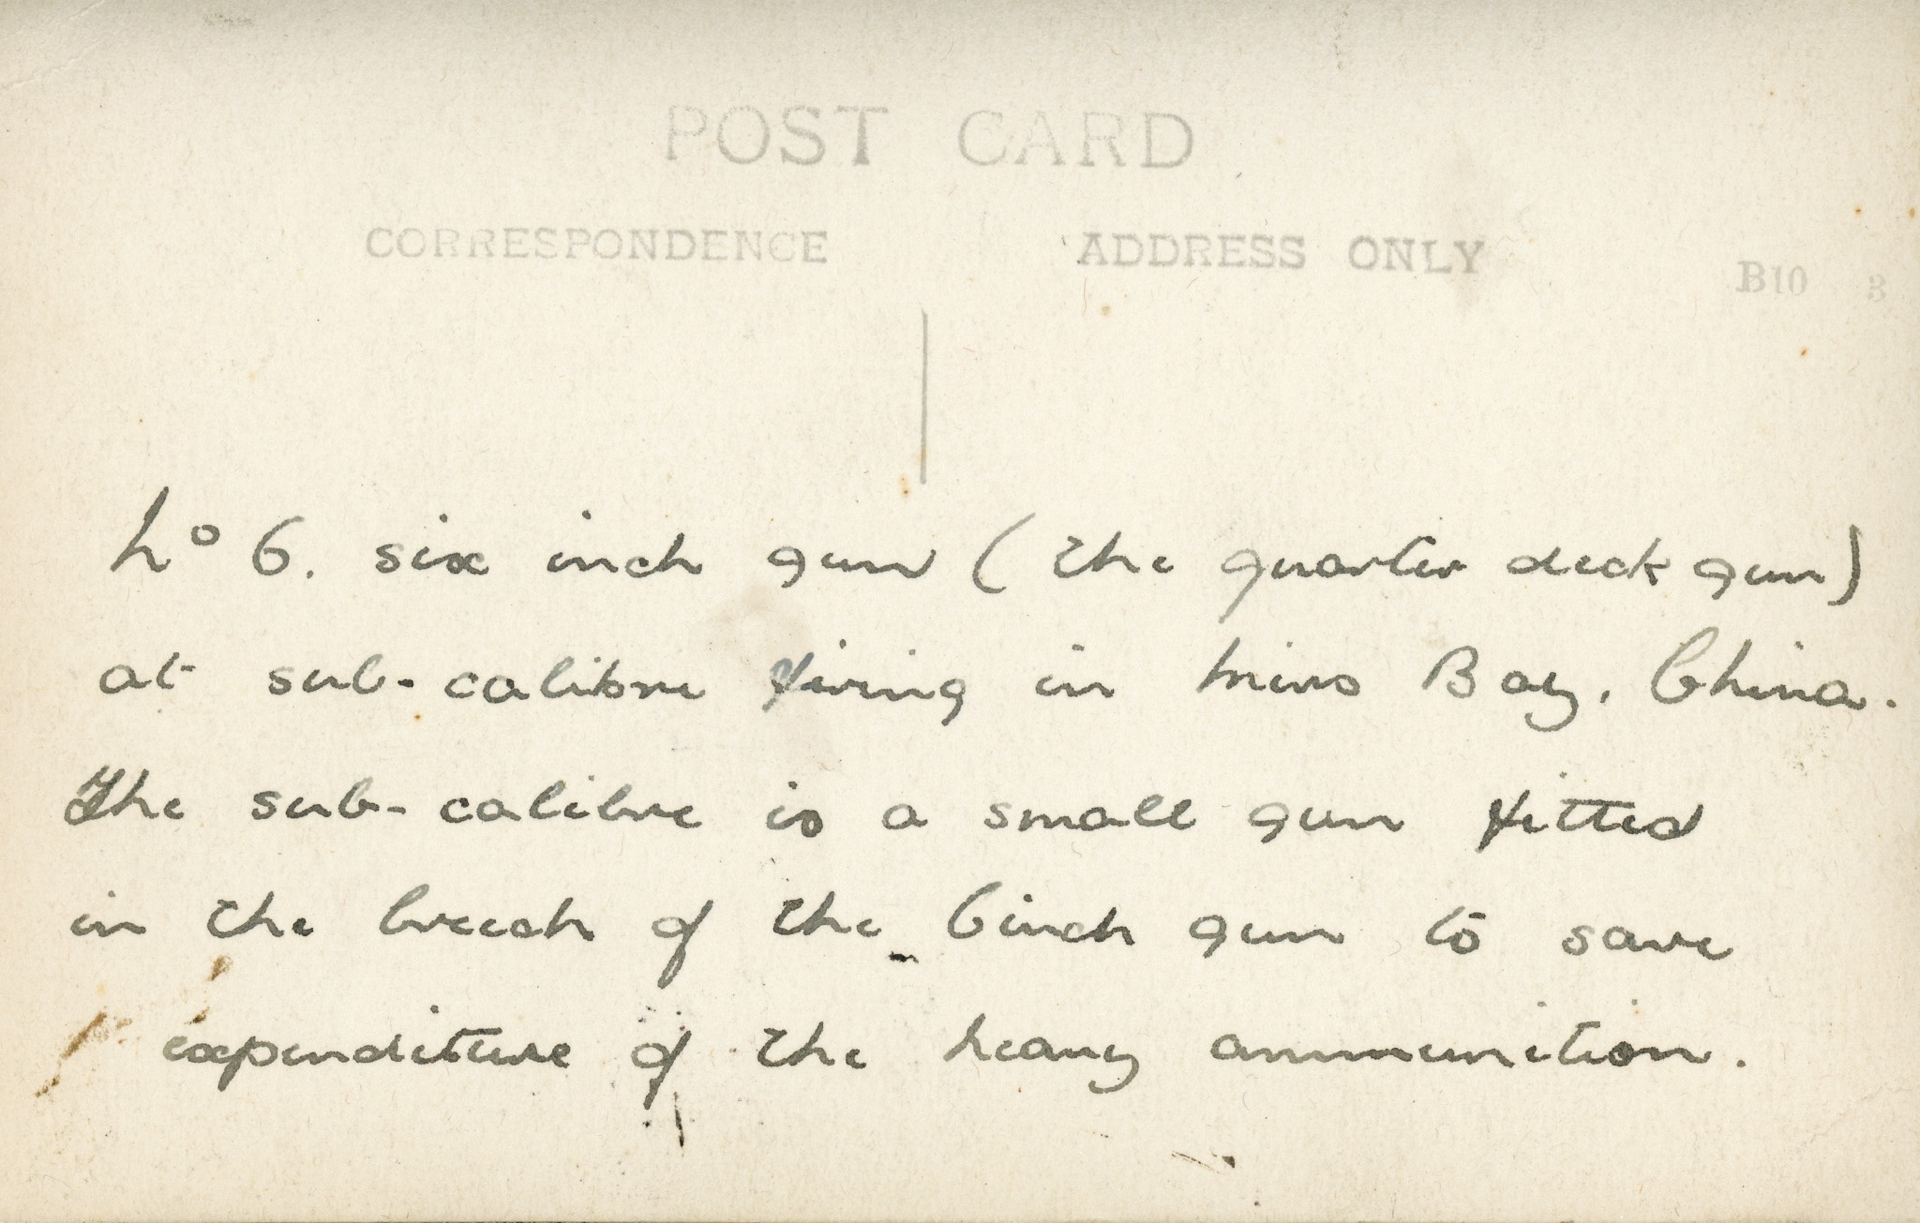 POST CARD
CORRESPONDENCE ADDRESS ONLY
B10 3
No 6. six inch gun (the quarter deck gun)
at sub-calibre firing in Mirs Bay, China.
The sub-calibre is a small gun fitted
in the breech of the 6inch gun to save
expenditure of the heavy ammunition.